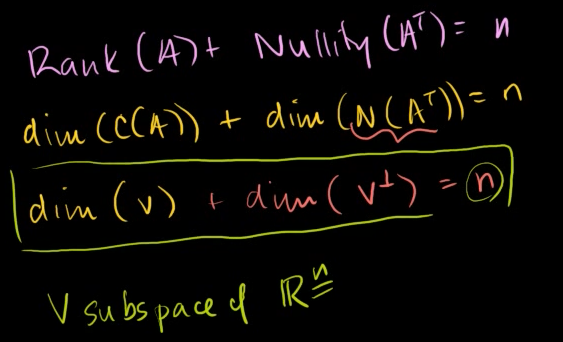 Rank (A) + Nullity (Aᵀ) = n
dim (C(A)) + dim (N(Aᵀ)) = n
dim (V) + dim (V⊥) = n
V subspace of ℝⁿ